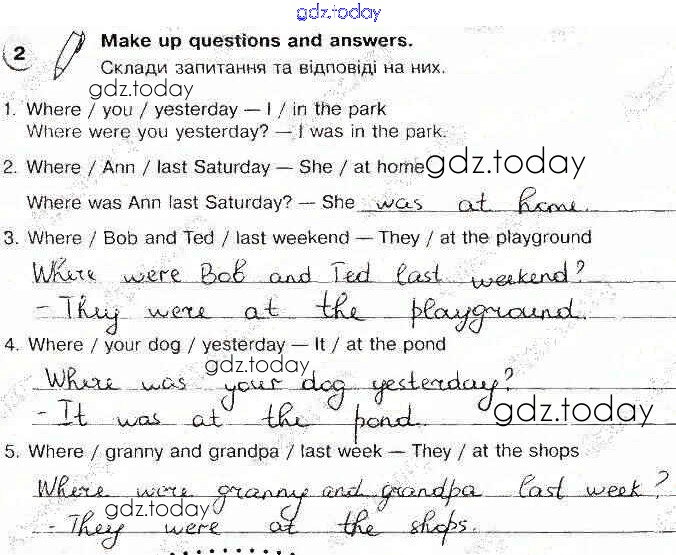 gdz.today
2
Make up questions and answers.
Склади запитання та відповіді на них.
gdz.today
1. Where / you / yesterday — I / in the park
Where were you yesterday? — I was in the park.
2. Where / Ann / last Saturday — She / at home
gdz.today
Where was Ann last Saturday? — She was at home.
3. Where / Bob and Ted / last weekend — They / at the playground
Where were Bob and Ted last weekend?
- They were at the playground.
4. Where / your dog / yesterday — It / at the pond
gdz.today
Where was your dog yesterday?
- It was at the pond.
gdz.today
5. Where / granny and grandpa / last week — They / at the shops
Where were granny and grandpa last week?
gdz.today
- They were at the shops.